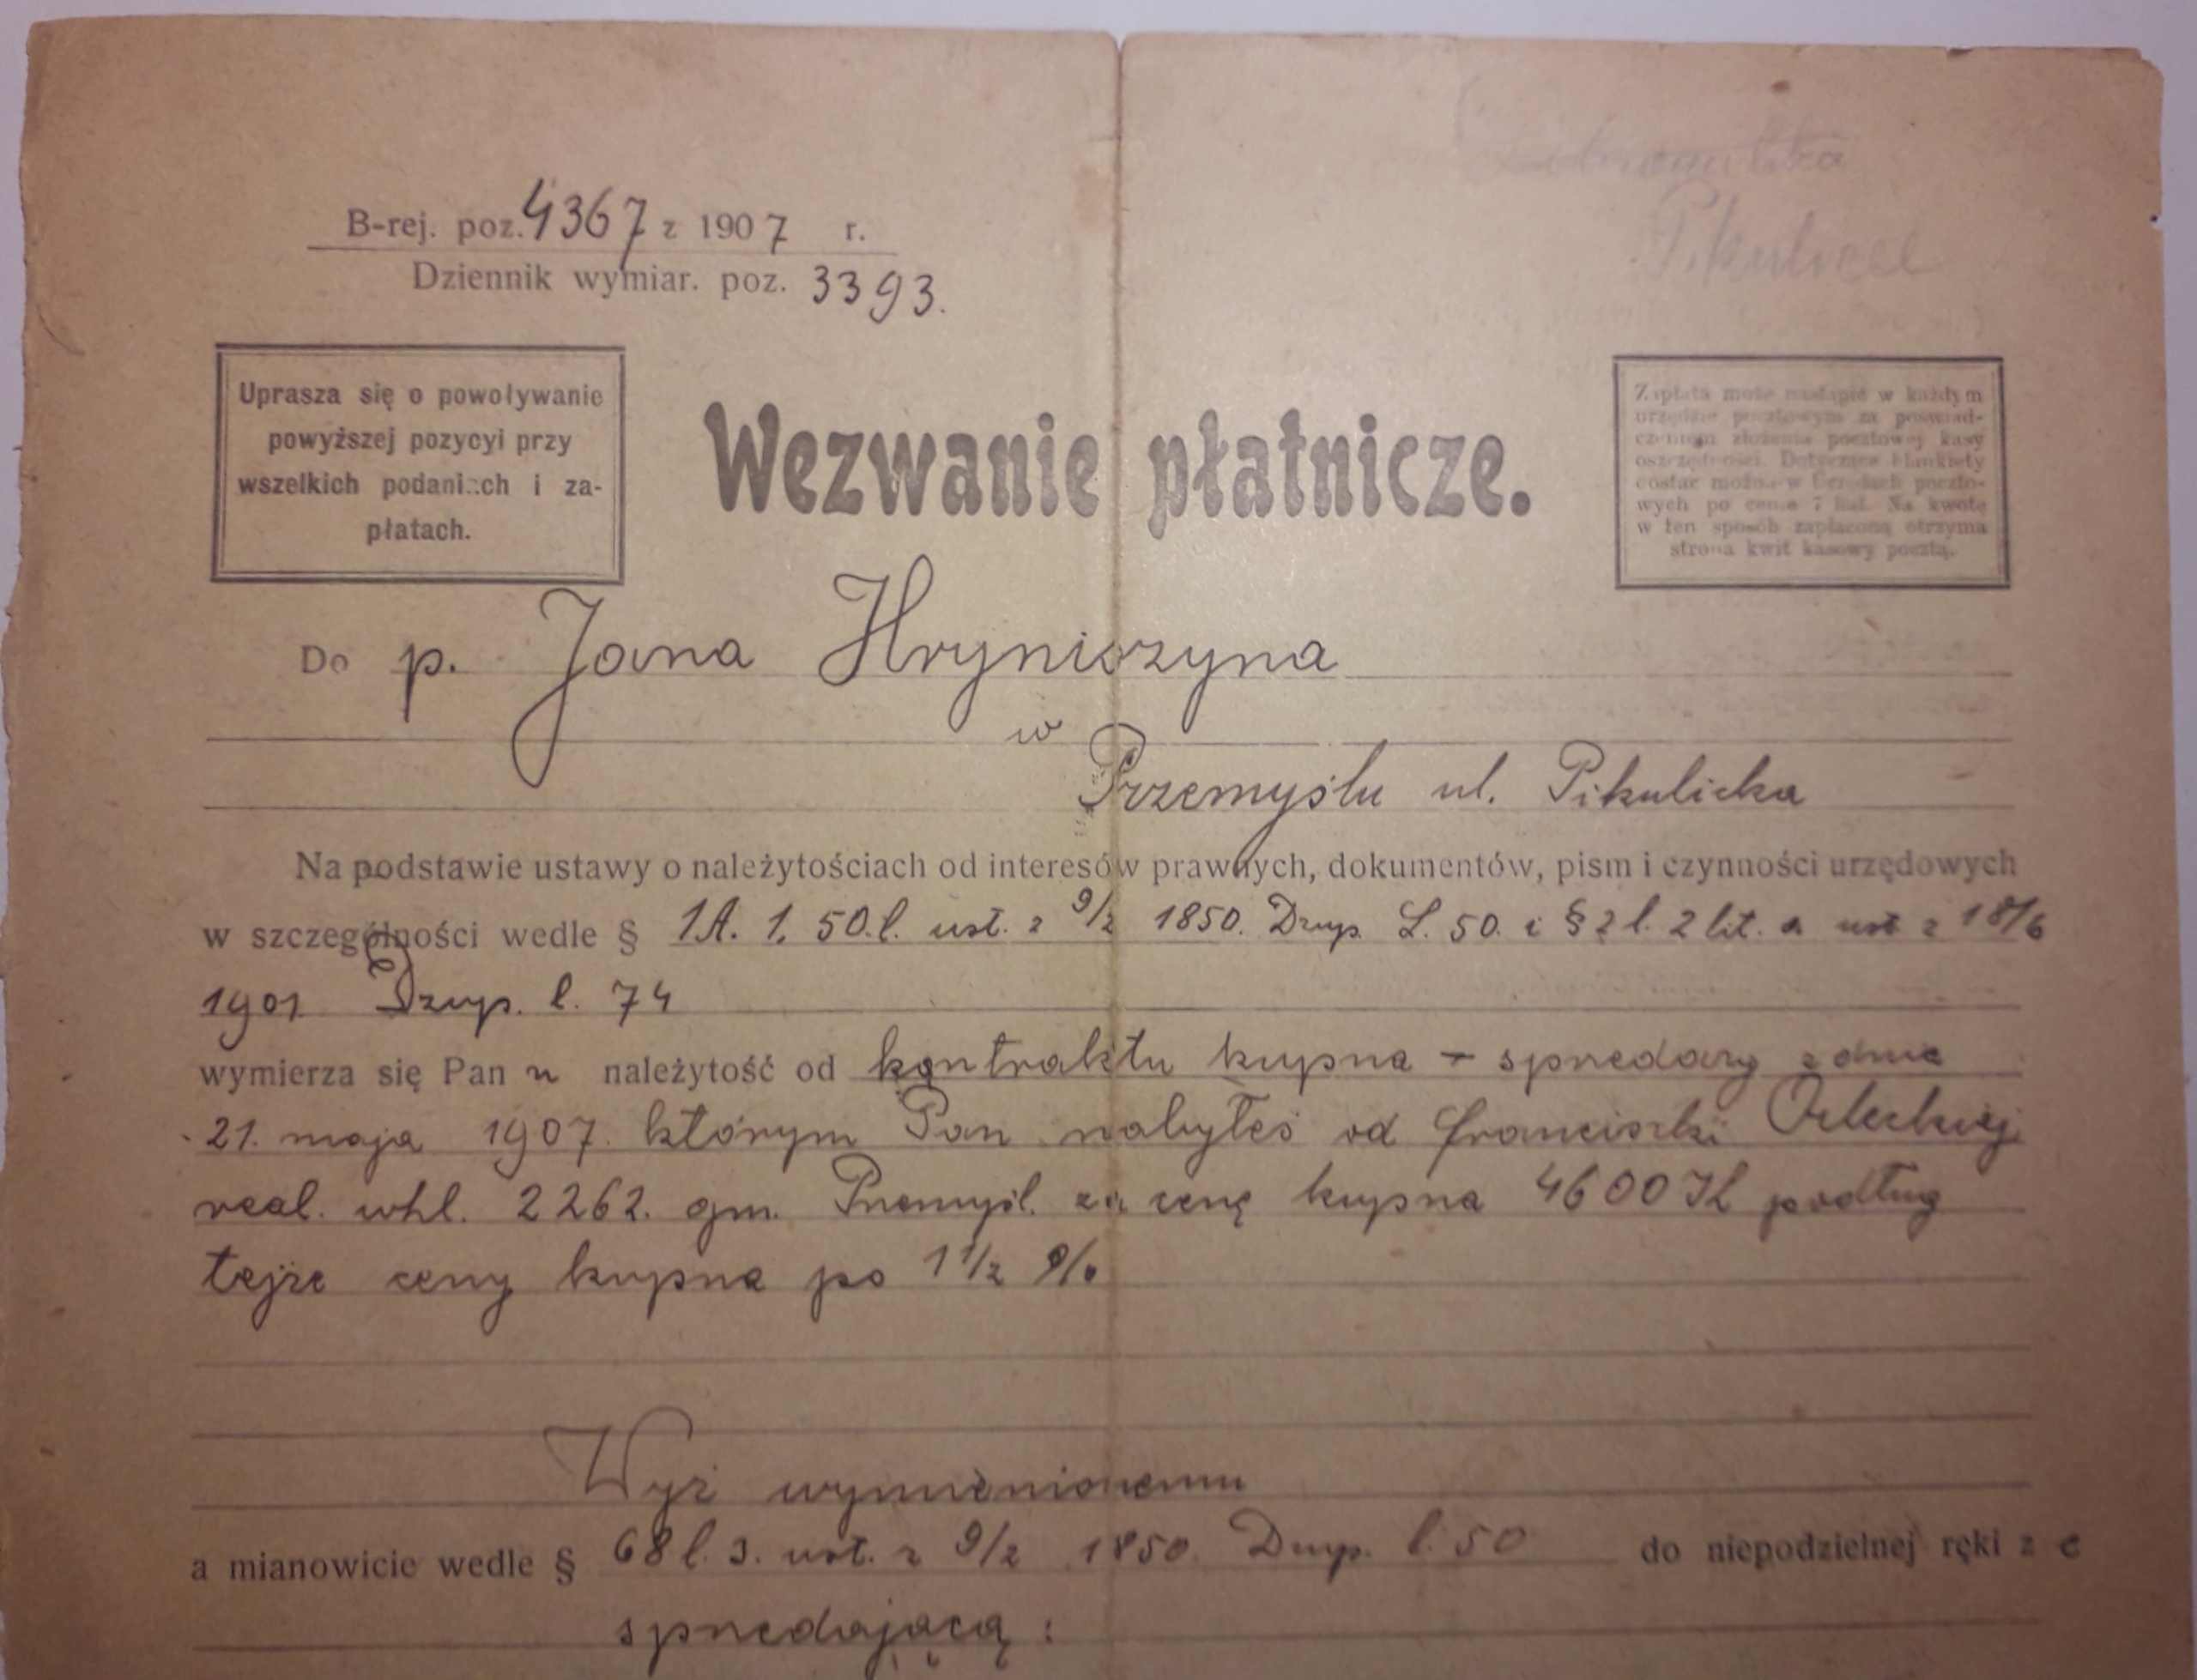 B-rej. poz. 4367 z 1907 r.
Dziennik wymiar. poz. 3393.
Pikulice
Uprasza się o powoływanie
powyższej pozycyi przy
wszelkich podaniach i za-
płatach.
Wezwanie płatnicze.
Zapłata może nastąpić w każdym
urzędzie pocztowym za poświad-
czeniem złożenia pocztowej kasy
oszczędności. Dotyczące blankiety
dostać można w Urzędach poczto-
wych po cenie 7 hal. Na kwotę
w ten sposób zapłaconą otrzyma
strona kwit kasowy pocztą.
Do p. Jana Hryniszyna
w
Przemyślu ul. Pikulicka
Na podstawie ustawy o należytościach od interesów prawnych, dokumentów, pism i czynności urzędowych
w szczególności wedle § 1A. 1. 50.l. ust. z 9/2 1850. Dzup. L. 50. i § 2 l. 2 lit. a ust z 18/6
1901 Dzup. l. 74
wymierza się Panu należytość od kontraktu kupna - sprzedarzy z dnia
21. maja 1907. którym Pan nabyłeś od Franciszki Orłeckiej
real. whl. 2262. gm. Przemyśl. za cenę kupna 4600 K podług
tejże ceny kupna po 1 1/2 %
Wyż wymienionemu
a mianowicie wedle § 68 l. 3. ust. z 9/2 1850. Dzup. l. 50 do niepodzielnej ręki z e
sprzedającą :